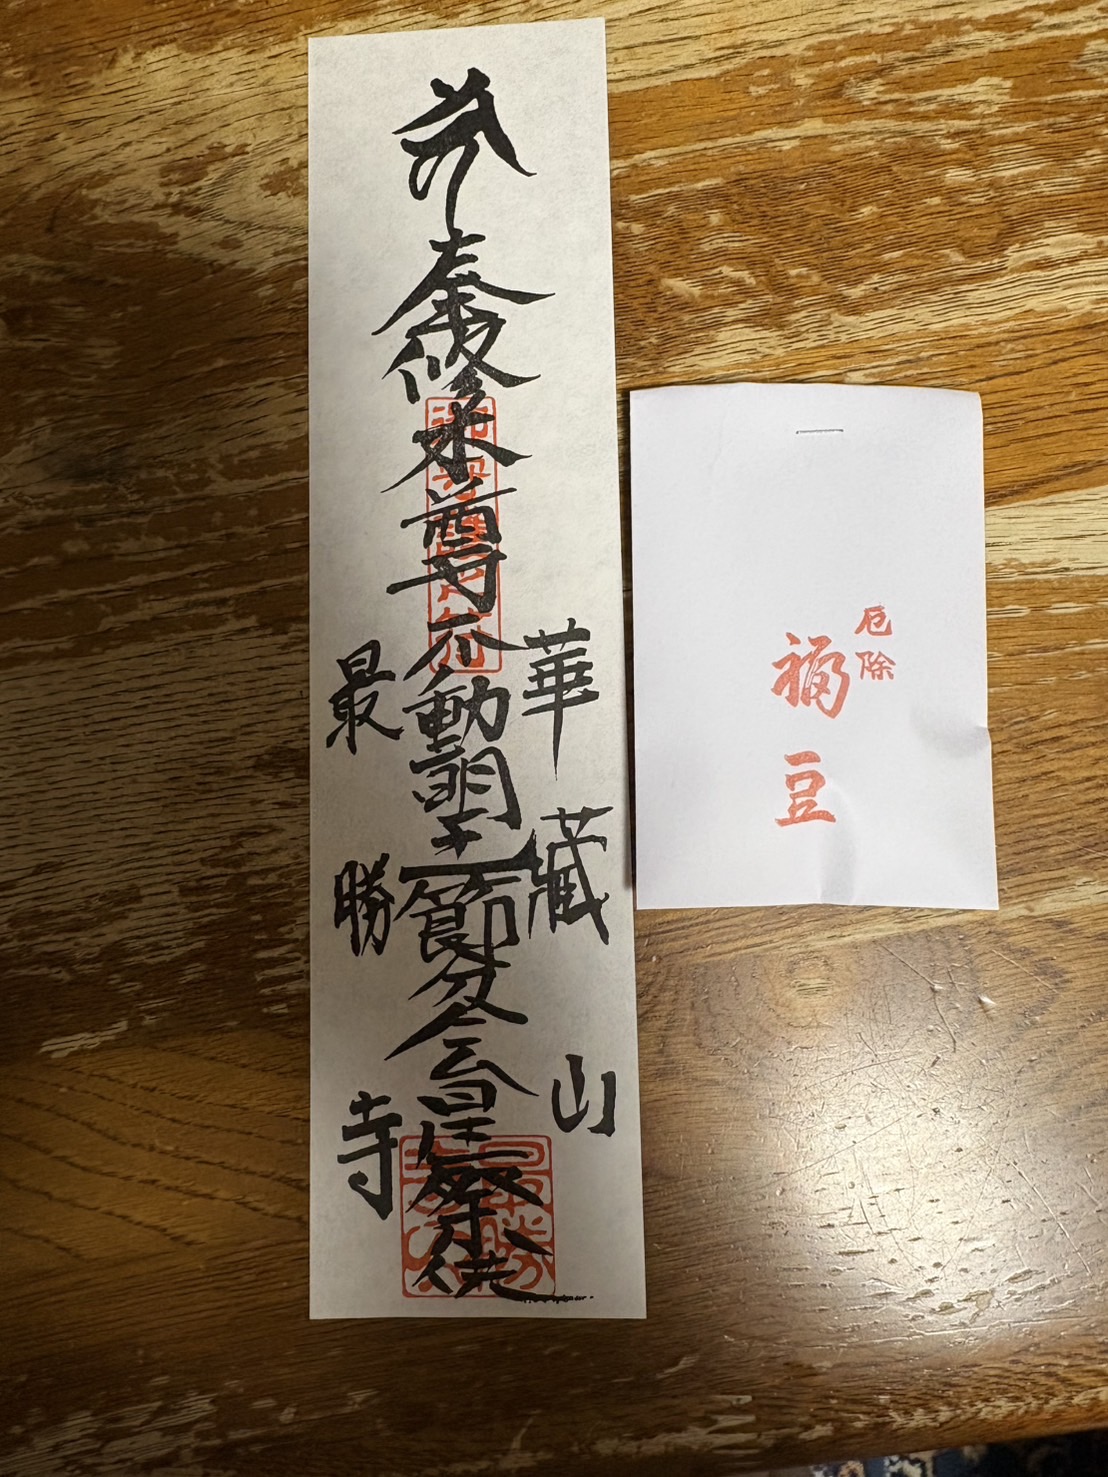 奉修本尊不動明王節分会星祭供
華蔵山
最勝寺
厄除
福豆